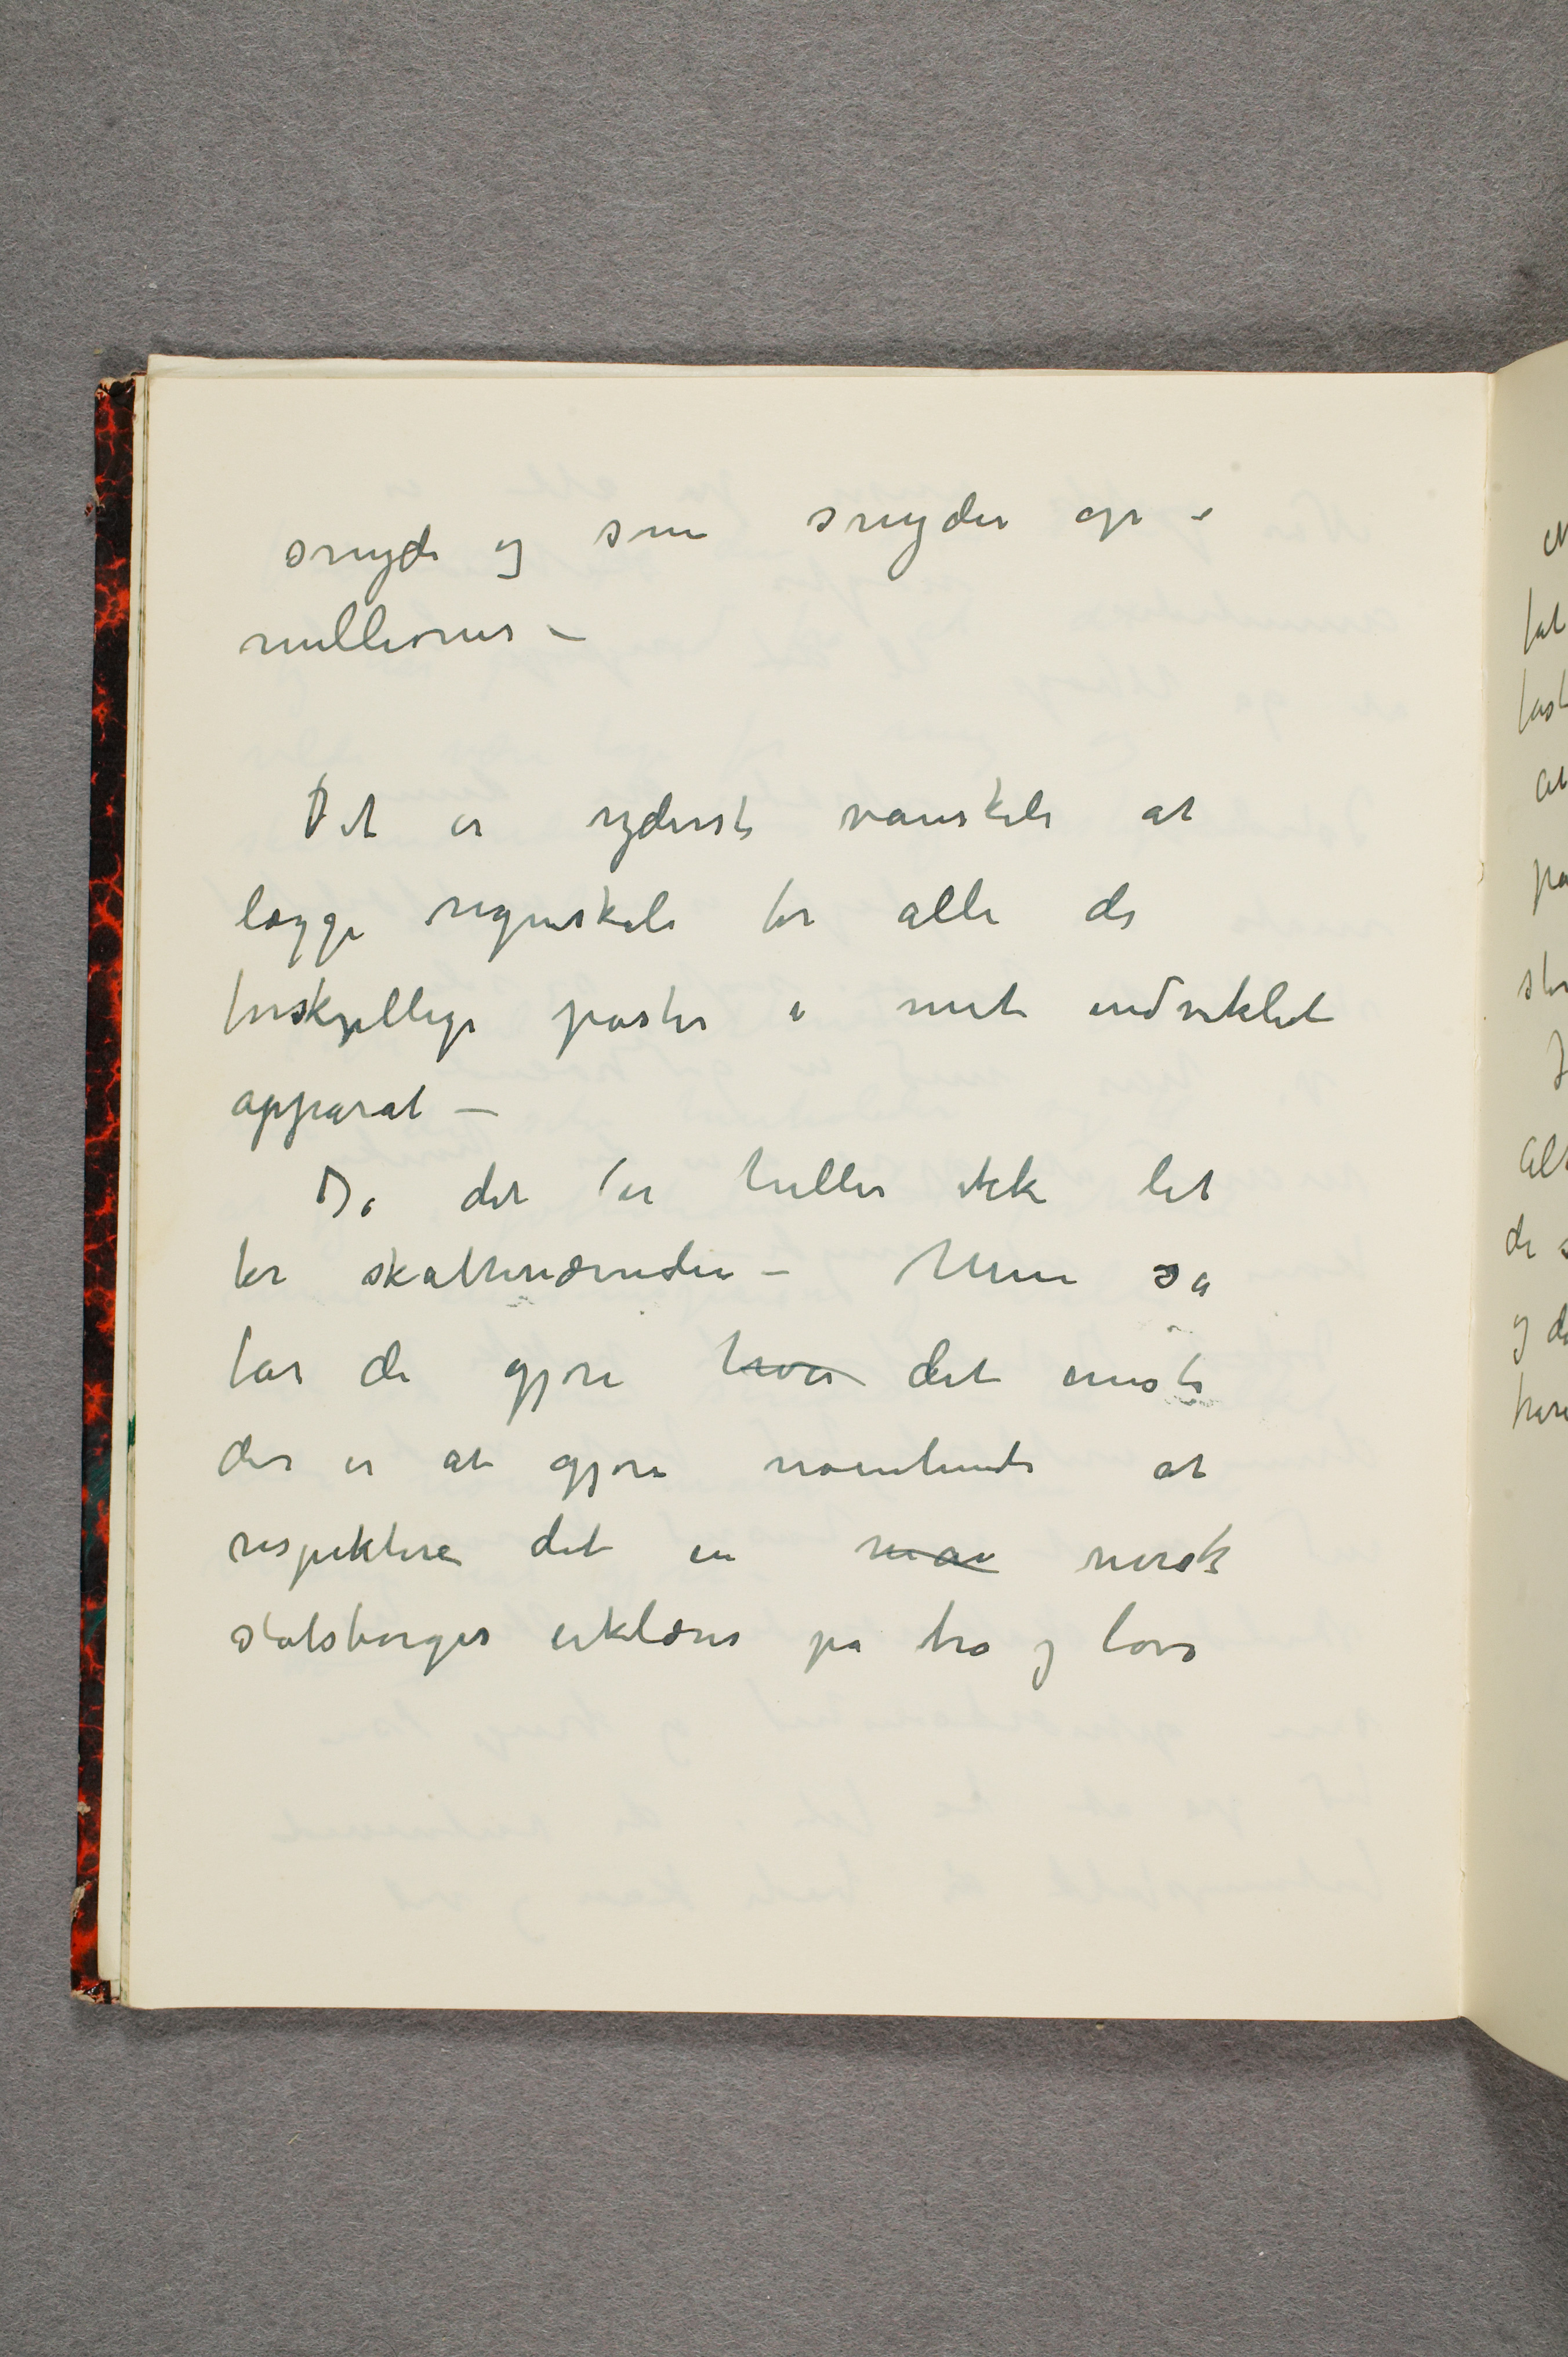 snyde og som snyder op i
millioner –
Det er yderst vanskeli at
lægge regnskab for alle de
forskjellige poster i mit indviklet
apparat –
Ja det er heller ikke let
for skattenævnden – Men så
får de gjøre hva det eneste
der er at gjøre nærmlig at
respektere det en man norsk
statsborger erklærer på tro og love